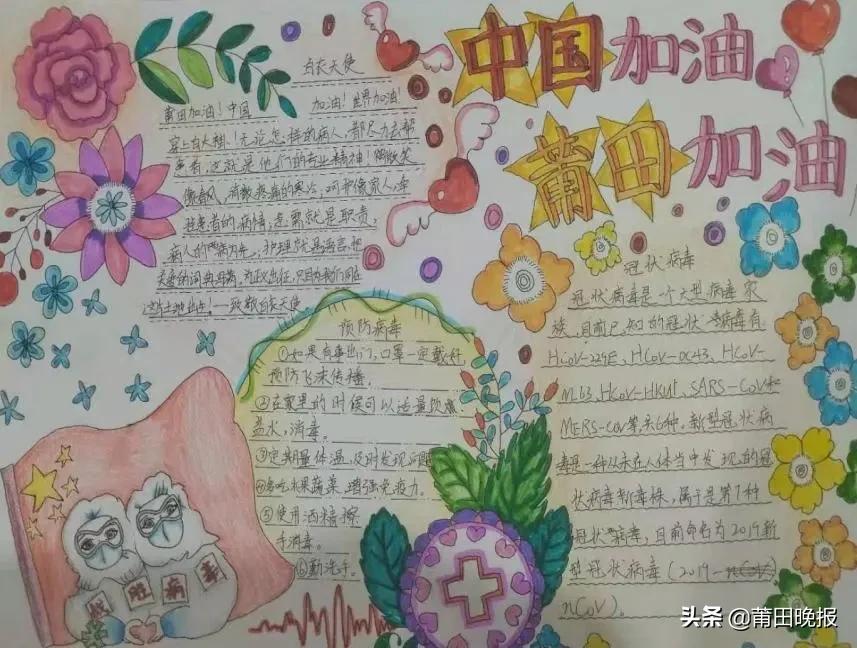 中国加油
莆田加油
白衣天使
莆田加油！中国 加油！世界加油！
穿上白大褂！无论怎样的病人，都尽力去帮
患者，这就是他们的专业精神！微笑
像春风，消散疼痛的寒冷，呵护像家人，牵
挂患者的病情，患需就是职责，
病人的病为先，护理就是语言，把
关爱的词典
这片土地出生！一致敬白衣天使
预防病毒
①如果有事出门，口罩一定戴好，
预防飞沫传播。
②在家里的时候可以适量饮
盐水，消毒。
③定期量体温，及时发现问题
④多吃水果蔬菜，增强免疫力。
⑤使用酒精擦
手消毒。
⑥勤洗手。
战胜病毒
冠状病毒
冠状病毒是一个大型病毒家
族，目前已知的冠状病毒有
HCoV-229E、HCoV-OC43、HCoV-
NL63、HCoV-HKU1、SARS-CoV和
MERS-CoV等，共6种。新型冠状病
毒是一种从未在人体当中发现的冠
状病毒新毒株，属于是第7种
冠状病毒，目前命名为2019新
型冠状病毒（2019-nCoV）
nCoV）。
头条 @莆田晚报